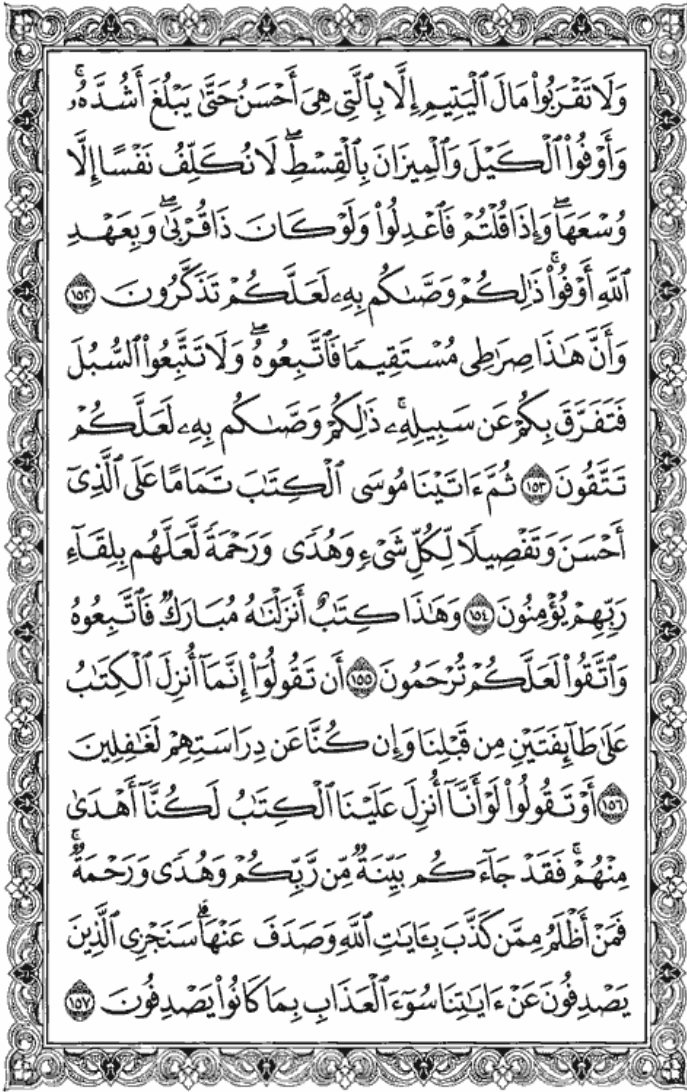 وَلَا تَقْرَبُوا۟ مَالَ ٱلْيَتِيمِ إِلَّا بِٱلَّتِى هِىَ أَحْسَنُ حَتَّىٰ يَبْلُغَ أَشُدَّهُۥۚ
وَأَوْفُوا۟ ٱلْكَيْلَ وَٱلْمِيزَانَ بِٱلْقِسْطِۖ لَا نُكَلِّفُ نَفْسًا إِلَّا
وُسْعَهَاۖ وَإِذَا قُلْتُمْ فَٱعْدِلُوا۟ وَلَوْ كَانَ ذَا قُرْبَىٰۖ وَبِعَهْدِ
ٱللَّهِ أَوْفُوا۟ۚ ذَٰلِكُمْ وَصَّىٰكُم بِهِۦ لَعَلَّكُمْ تَذَكَّرُونَ ١٥٢
وَأَنَّ هَٰذَا صِرَٰطِى مُسْتَقِيمًا فَٱتَّبِعُوهُۖ وَلَا تَتَّبِعُوا۟ ٱلسُّبُلَ
فَتَفَرَّقَ بِكُمْ عَن سَبِيلِهِۦۚ ذَٰلِكُمْ وَصَّىٰكُم بِهِۦ لَعَلَّكُمْ
تَتَّقُونَ ١٥٣ ثُمَّ ءَاتَيْنَا مُوسَى ٱلْكِتَٰبَ تَمَامًا عَلَى ٱلَّذِىٓ
أَحْسَنَ وَتَفْصِيلًا لِّكُلِّ شَىْءٍ وَهُدًى وَرَحْمَةً لَّعَلَّهُم بِلِقَآءِ
رَبِّهِمْ يُؤْمِنُونَ ١٥٤ وَهَٰذَا كِتَٰبٌ أَنزَلْنَٰهُ مُبَارَكٌ فَٱتَّبِعُوهُ
وَٱتَّقُوا۟ لَعَلَّكُمْ تُرْحَمُونَ ١٥٥ أَن تَقُولُوٓا۟ إِنَّمَآ أُنزِلَ ٱلْكِتَٰبُ
عَلَىٰ طَآئِفَتَيْنِ مِن قَبْلِنَا وَإِن كُنَّا عَن دِرَاسَتِهِمْ لَغَٰفِلِينَ
١٥٦ أَوْ تَقُولُوا۟ لَوْ أَنَّآ أُنزِلَ عَلَيْنَا ٱلْكِتَٰبُ لَكُنَّآ أَهْدَىٰ
مِنْهُمْۚ فَقَدْ جَآءَكُم بَيِّنَةٌ مِّن رَّبِّكُمْ وَهُدًى وَرَحْمَةٌۚ
فَمَنْ أَظْلَمُ مِمَّن كَذَّبَ بِـَٔايَٰتِ ٱللَّهِ وَصَدَفَ عَنْهَاۗ سَنَجْزِى ٱلَّذِينَ
يَصْدِفُونَ عَنْ ءَايَٰتِنَا سُوٓءَ ٱلْعَذَابِ بِمَا كَانُوا۟ يَصْدِفُونَ ١٥٧